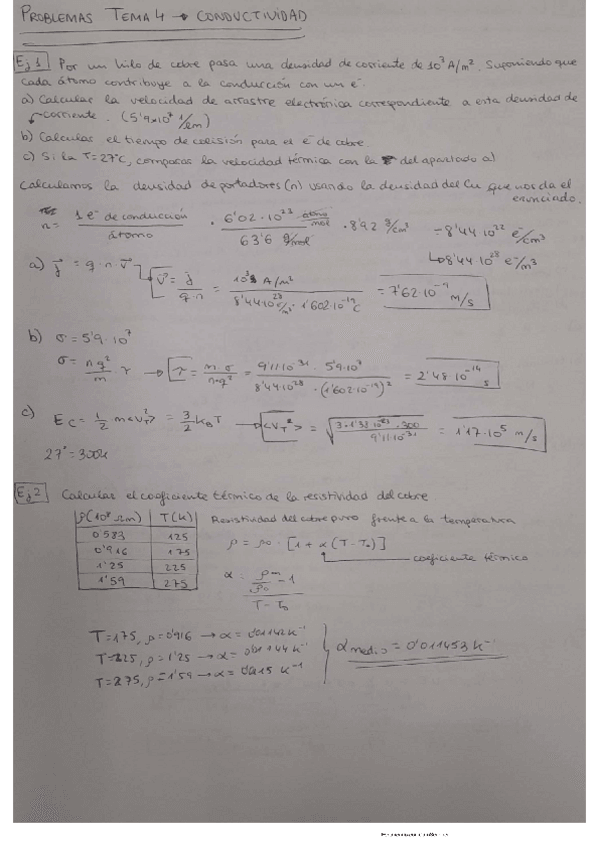 PROBLEMAS TEMA 4 → CONDUCTIVIDAD
Ej 1 Por un hilo de cobre pasa una densidad de corriente de 10⁷ A/m². Suponiendo que
cada átomo contribuye a la conducción con un e⁻.
a) Calcular la velocidad de arrastre electrónica correspondiente a esta densidad de
corriente. (5'9×10⁷ 1/Ωm)
b) Calcular el tiempo de colisión para el e⁻ de cobre.
c) Si la T=27°C, comparar la velocidad térmica con la del apartado a)
Calculamos la densidad de portadores (n) usando la densidad del Cu que nos da el
enunciado.
n = 1 e⁻ de conducción / átomo · 6'02·10²³ átomo/mol / 63'6 g/mol · 8'92 g/cm³ = 8'44·10²² e⁻/cm³
↳ 8'44·10²⁸ e⁻/m³
a) j = q·n·v → v = j / q·n = A/m² / 8'44·10²⁸ e⁻/m³ · 1'602·10⁻¹⁹ C = m/s
b) σ = 5'9·10⁷
σ = nq²/m · τ → τ = m·σ / n·q² = 9'11·10⁻³¹ · 5'9·10⁷ / 8'44·10²⁸ · (1'602·10⁻¹⁹)² = 2'48·10⁻¹⁴ s
c) Ec = 1/2 m<v_T²> = 3/2 k_B T → <v_T²> = √(3·1'38·10⁻²³·300 / 9'11·10⁻³¹) = 1'17·10⁵ m/s
27° = 300k
Ej 2 Calcular el coeficiente térmico de la resistividad del cobre
ρ(10⁸ Ωm) T(k)
0'583 125
0'916 175
1'25 225
1'59 275
Resistividad del cobre puro frente a la temperatura
ρ = ρ₀ · [1 + α(T-T₀)]
coeficiente térmico
α = ρ/ρ₀ - 1 / T-T₀
T=175, ρ=0'916 → α = 0'01142 k⁻¹
T=225, ρ=1'25 → α = 0'01144 k⁻¹
T=275, ρ=1'59 → α = 0'0115 k⁻¹
α medio = 0'011453 k⁻¹